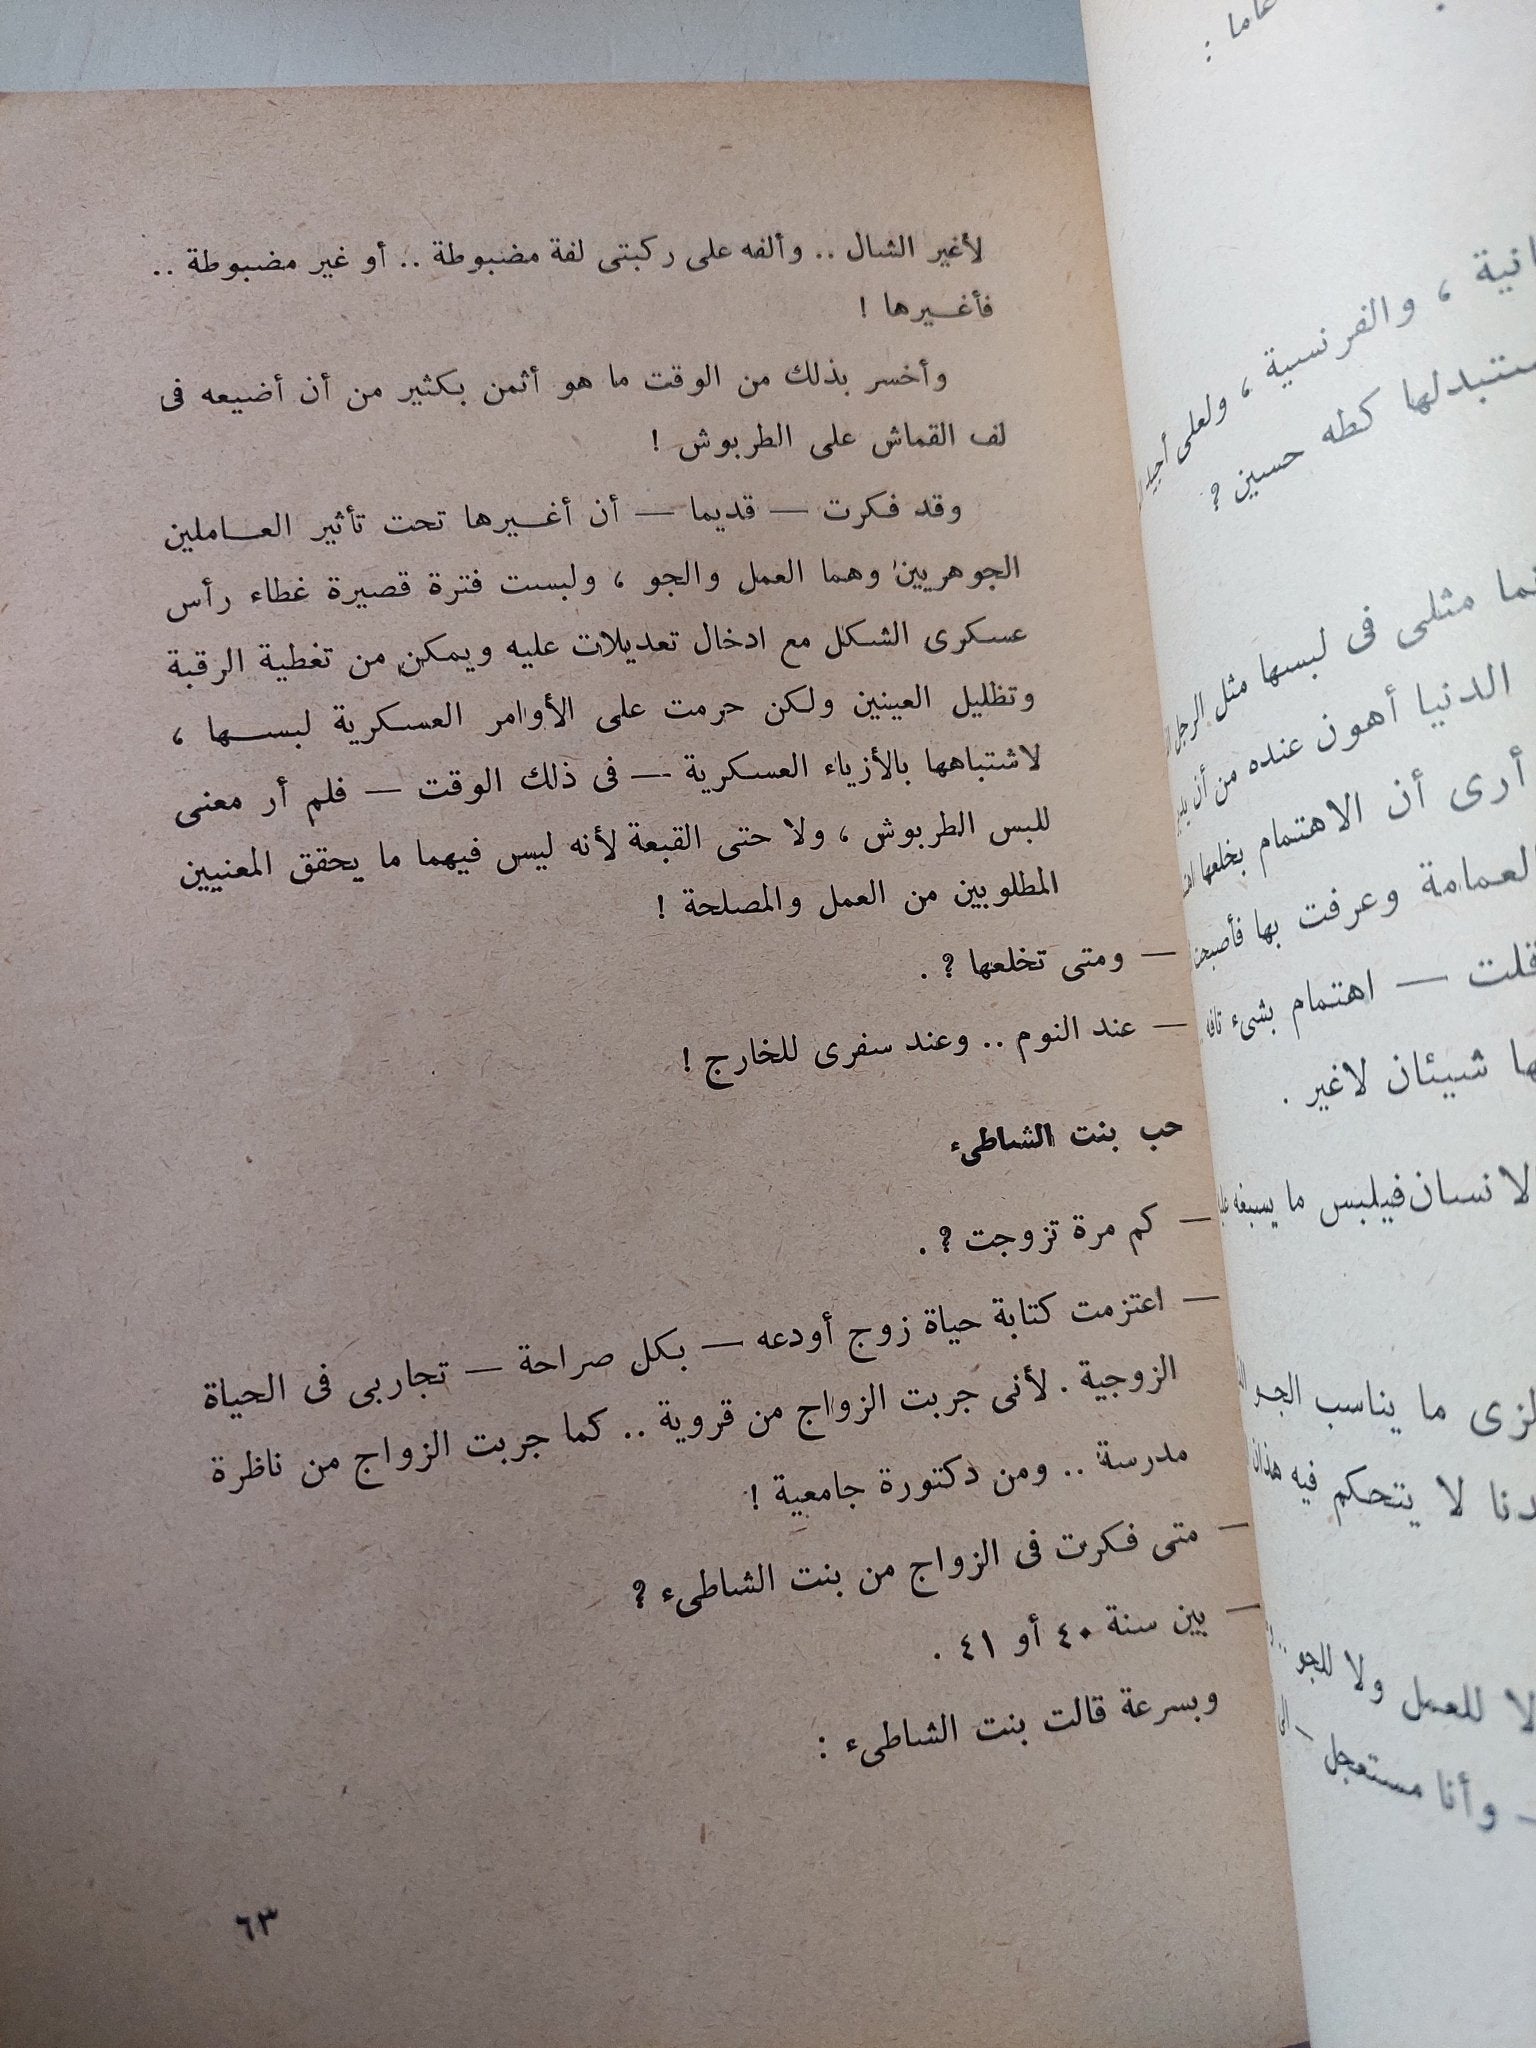 عاما :
انية ، والفرنسية ، ولعلى أجيد
ستبدلها كطه حسين ؟
مثلى فى لبسها مثل الرجل
الدنيا أهون عنده من أن
أرى أن الاهتمام بخلعها
العمامة وعرفت بها فأصبحت
قلت — اهتمام بشىء تافه
ها شيئان لاغير .
الانسان فيلبس ما يسبغه
الزى ما يناسب الجو
لا يتحكم فيه هذان
لا للعمل ولا للجو ..
وأنا مستعجل — الى
لأغير الشال .. وألفه على ركبتى لفة مضبوطة .. أو غير مضبوطة ..
فأغـيرها !
وأخسر بذلك من الوقت ما هو أثمن بكثير من أن أضيعه فى
لف القماش على الطربوش !
وقد فكرت — قديما — أن أغـيرها تحت تأثير العـاملين
الجوهريين وهما العمل والجو ، ولبست فترة قصيرة غطاء رأس
عسكرى الشكل مع ادخال تعديلات عليه ويمكن من تغطية الرقبة
وتظليل العينين ولكن حرمت على الأوامر العسكرية لبسـها ،
لاشتباهها بالأزياء العسكرية — فى ذلك الوقت — فلم أر معنى
للبس الطربوش ، ولا حتى القبعة لأنه ليس فيهما ما يحقق المعنيين
المطلوبين من العمل والمصلحة !
— ومتى تخلعها ؟ .
— عند النوم .. وعند سفرى للخارج !
حب بنت الشاطىء
— كم مرة تزوجت ؟ .
— اعتزمت كتابة حياة زوج أودعه — بكل صراحة — تجاربى فى الحياة
الزوجية . لأنى جربت الزواج من قروية .. كما جربت الزواج من ناظرة
مدرسة .. ومن دكتورة جامعية !
— متى فكرت فى الزواج من بنت الشاطىء ؟
— بين سنة ٤٠ أو ٤١ .
وبسرعة قالت بنت الشاطىء :
٦٣